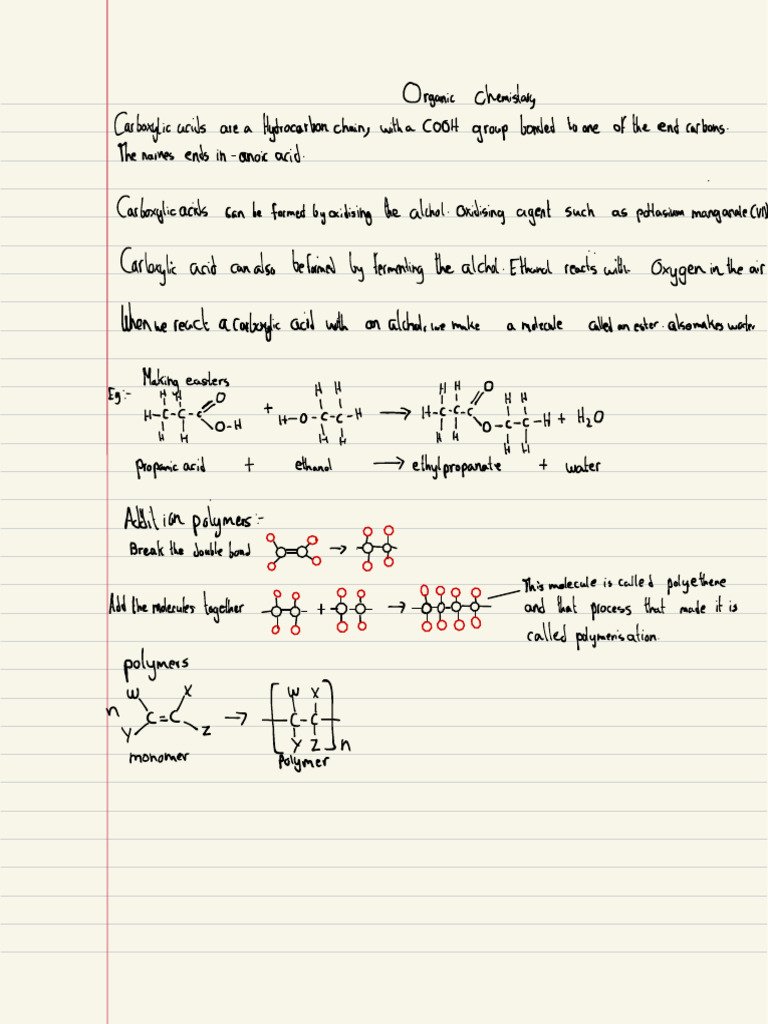 Organic Chemistary
Carboxylic acids are a Hydrocarbon chain, with a COOH group bonded to one of the end carbons.
The names ends in -anoic acid.
Carboxylic acids can be formed by oxidising the alchol. Oxidising agent such as pottasium manganate (VII)
Carboxylic acid can also be formed by fermenting the alchol. Ethanol reacts with Oxygen in the air
When we react a carboxylic acid with an alchol, we make a molecule called an ester. also makes water
Making easters
Eg:-
H H O H H H H O H H
H-C-C-C + H-O-C-C-H → H-C-C-C O-C-C-H + H₂O
H H O-H H H H H H H
propanic acid + ethanol → ethylpropanate + water
Addition polymers:-
Break the double bond →
Add the molecules together + → This molecule is called polyethene
and that process that made it is
called polymerisation.
polymers
W X W X
n C=C → C-C
Y Z Y Z n
monomer polymer